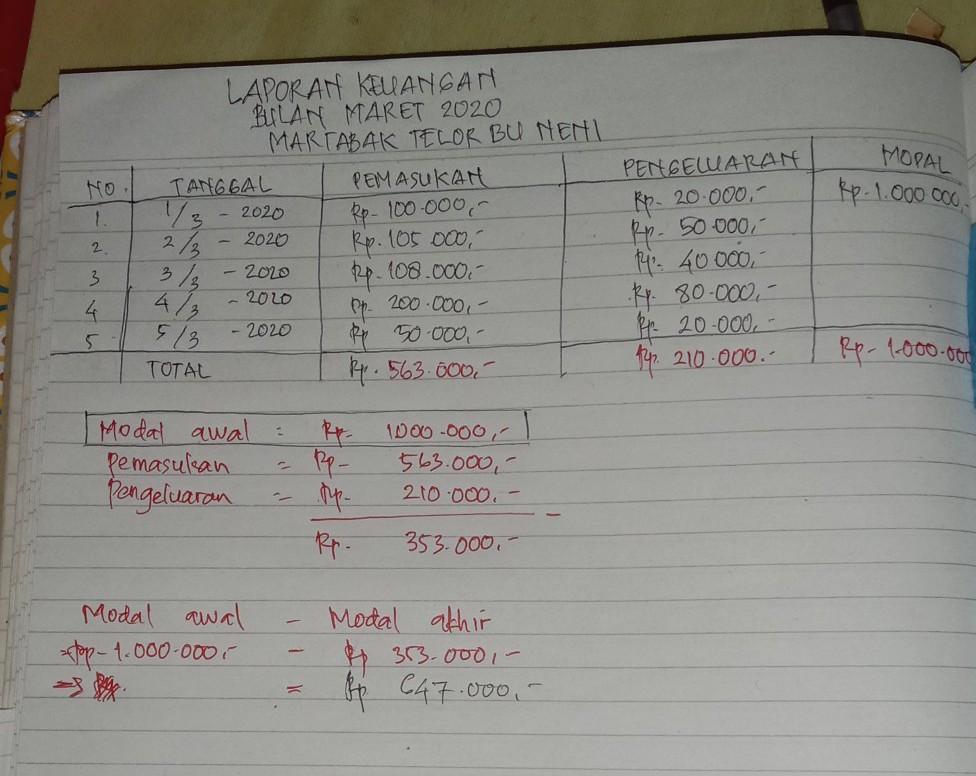 LAPORAN KEUANGAN
BULAN MARET 2020
MARTABAK TELOR BU NENI
NO. TANGGAL PEMASUKAN PENGELUARAN MODAL
1. 1/3 - 2020 Rp- 100.000,- Rp- 20.000,- Rp- 1.000.000,
2. 2/3 - 2020 Rp. 105.000,- Rp- 50.000,-
3 3/3 - 2020 Rp. 108.000,- Rp. 40.000,-
4 4/3 - 2020 Rp. 200.000,- Rp. 80.000,-
5 5/3 - 2020 Rp 50.000,- Rp- 20.000,-
TOTAL Rp. 563.000,- Rp. 210.000.- Rp- 1.000.000
Modal awal = Rp- 1000.000,-
Pemasukan = Rp- 563.000,-
Pengeluaran = Rp- 210.000.-
-
Rp. 353.000,-
Modal awal - Modal akhir
Rp- 1.000.000,- - Rp 353.000,-
= Rp 647.000,-